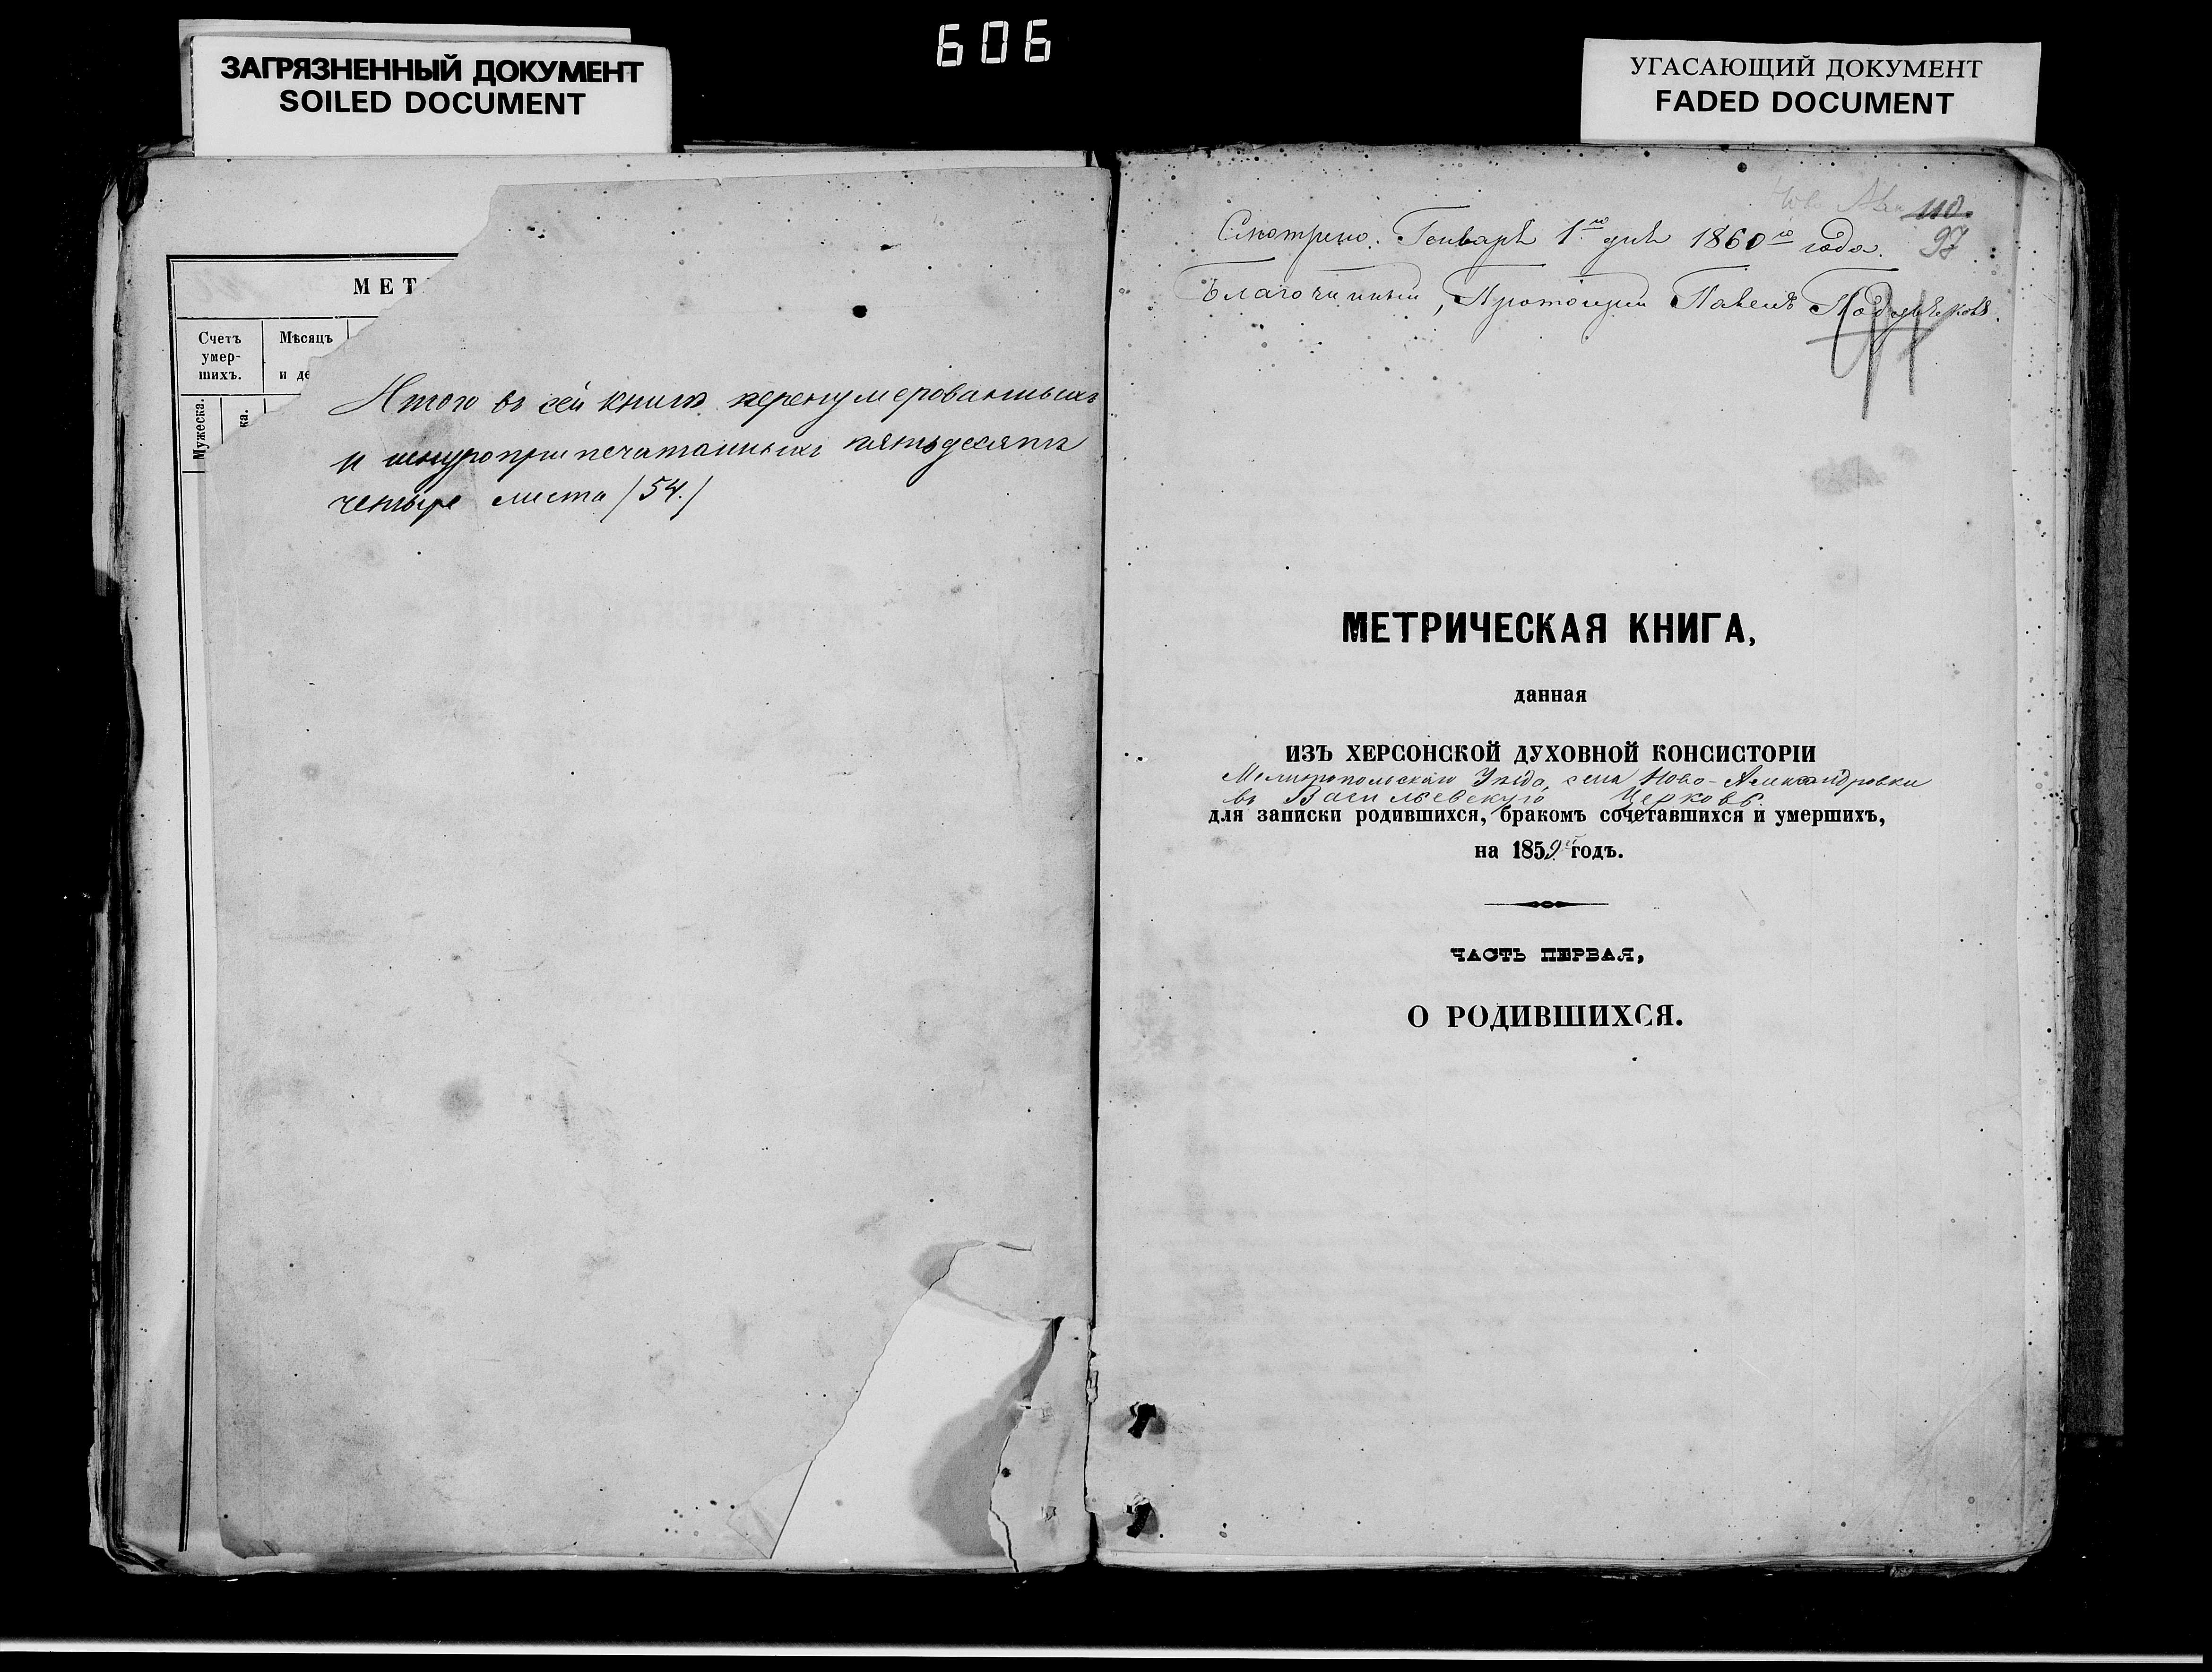 606
ЗАГРЯЗНЕННЫЙ ДОКУМЕНТ
SOILED DOCUMENT
УГАСАЮЩИЙ ДОКУМЕНТ
FADED DOCUMENT
МЕТ
Счетъ умер-шихъ.
Мѣсяцъ и де
Мужеска.
ка.
Итого въ сей книгѣ перенумерованныхъ
и шнуроприпечатанныхъ пятьдесятъ
четыре листа /54./
110
97
Смотрено. Генваря 1го дня 1860го года.
Благочинный, Протоіерей Павелъ
МЕТРИЧЕСКАЯ КНИГА,
данная
ИЗЪ ХЕРСОНСКОЙ ДУХОВНОЙ КОНСИСТОРІИ
Мелитопольскаго Уѣзда, села Ново-Александровки
въ Васильевскую Церковь.
для записки родившихся, бракомъ сочетавшихся и умершихъ,
на 1859й годъ.
ЧАСТЬ ПЕРВАЯ,
О РОДИВШИХСЯ.